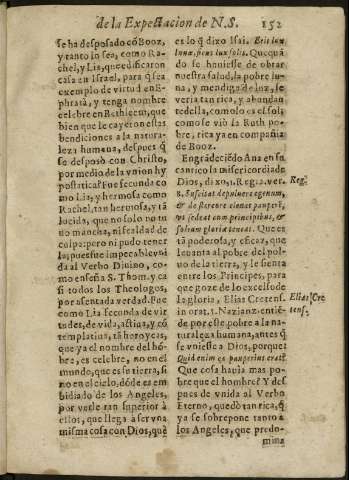 de la Expectacion de N.S. 152
se ha desposado cõ Booz,
y tanto lo sea, como Ra-
chel, y Lia, que edificaron
casa en Israel, para q̃ sea
exemplo de virtud en E-
phratà, y tenga nombre
celebre en Bethleem; que
bien que le cayeron estas
bendiciones a la natura-
leza humana, despues q̃
se desposò con Christo,
por medio de la vnion hy
postatica? Fue fecunda co
mo Lia, y hermosa como
Rachel, tan hermosa, y tã
lucida, que no solo no tu
uo mancha, ni fealdad de
culpa: pero ni pudo tener
la, pues fue impecable vni
da al Verbo Diuino, como
mo enseña S. Thom. y ca
si todos los Theologos,
por asentada verdad. Fue
como Lia fecunda de vir
tudes, de vida, actiua, y cõ
templatiua, tã heroycas,
que ya el nombre del hõ-
bre, es celebre, no en el
mundo, que es su tierra, si
no en el cielo, dõde es em
bidiado de los Angeles,
por verle tan superior à
ellos, que llega à ser vna
misma cosa con Dios, que
es lo q̃ dixo Isai. Erit lux
lunæ, sicut lux solis. Que quã
do se huuiesse de obrar
nuestra salud, la pobre lu-
na, y mendiga de luz, se
veria tan rica, y abundan
te della, como lo es el sol;
como se viò la Ruth po-
bre, rica ya en compañia
de Booz.
Engrãdeciẽdo Ana en su
cantico la misericordia de
Dios, dixo, 1. Reg. 2. ver. Reg.
8. Suscitat de puluere egenum,
& de stercore eleuat pauperẽ,
vt sedeat cum principibus, &
solium gloriæ teneat. Que es
tã poderosa, y eficaz, que
leuanta al pobre del pol-
uo de la tierra, y le sienta
entre los Principes, para
que goze de lo excelso de
la gloria, Elias Cretens. Elias Cre
in orat. 1. Nazianz. entiẽ- tens.
de por este pobre a la na-
turaleza humana, antes q̃
se vniesse a Dios, porque:
Quid enim eo pauperius erat?
Que cosa hauia mas po-
bre que el hombre? Y des
pues de vnida al Verbo
Eterno, quedò tan rica, q̃
ya se sobrepone tanto a
los Angeles, que predo-
mina